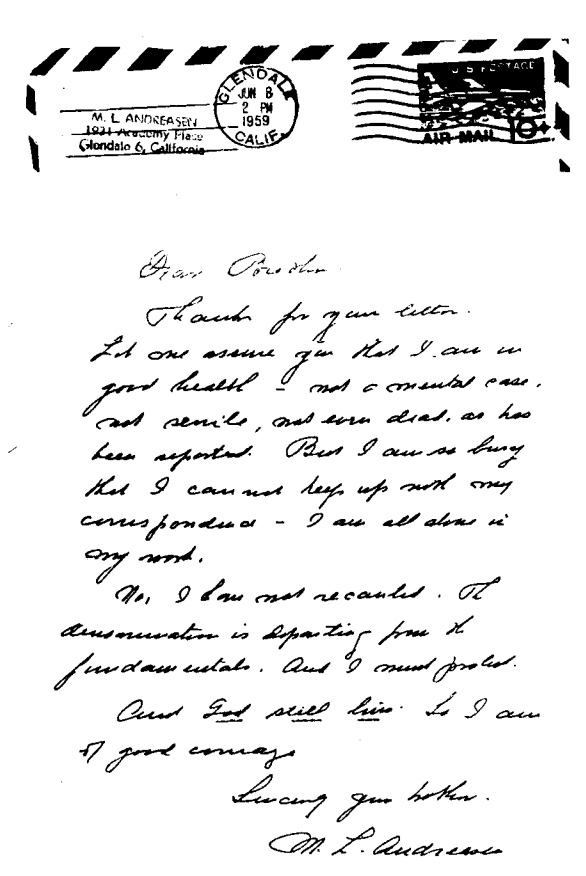 GLENDALE
JUN 8
2 PM
1959
CALIF.
U.S. POSTAGE
10¢
AIR MAIL
M. L. ANDREASEN
1931 Academy Place
Glendale 6, California
Dear
Thanks for your letter.
Let me assure you that I am in
good health – not a mental case,
not senile, not even dead, as has
been reported. But I am so busy
that I cannot keep up with my
correspondence – I am all alone in
my work.
No, I have not recanted. The
denomination is departing from the
fundamentals. And I must protest.
And God still lives. So I am
of good courage
Sincerely your brother.
M. L. Andreasen